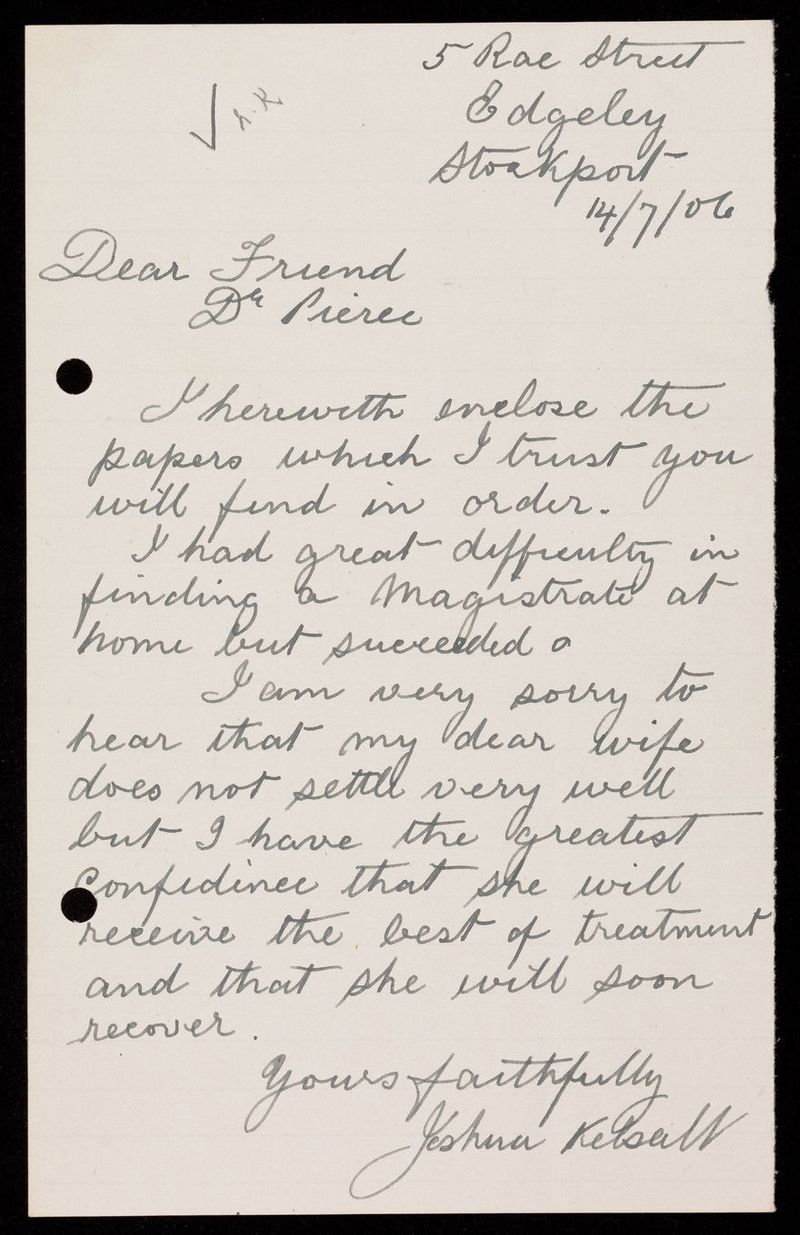 5 Rae Street
Edgeley
Stockport
14/7/06
Dear Friend
Dr Pierce
I herewith enclose the
papers which I trust you
will find in order.
I had great difficulty in
finding a Magistrate at
home but succeeded.
I am very sorry to
hear that my dear wife
does not settle very well
but I have the greatest
confidence that she will
receive the best of treatment
and that she will soon
recover.
Yours faithfully
Joshua Kelsall